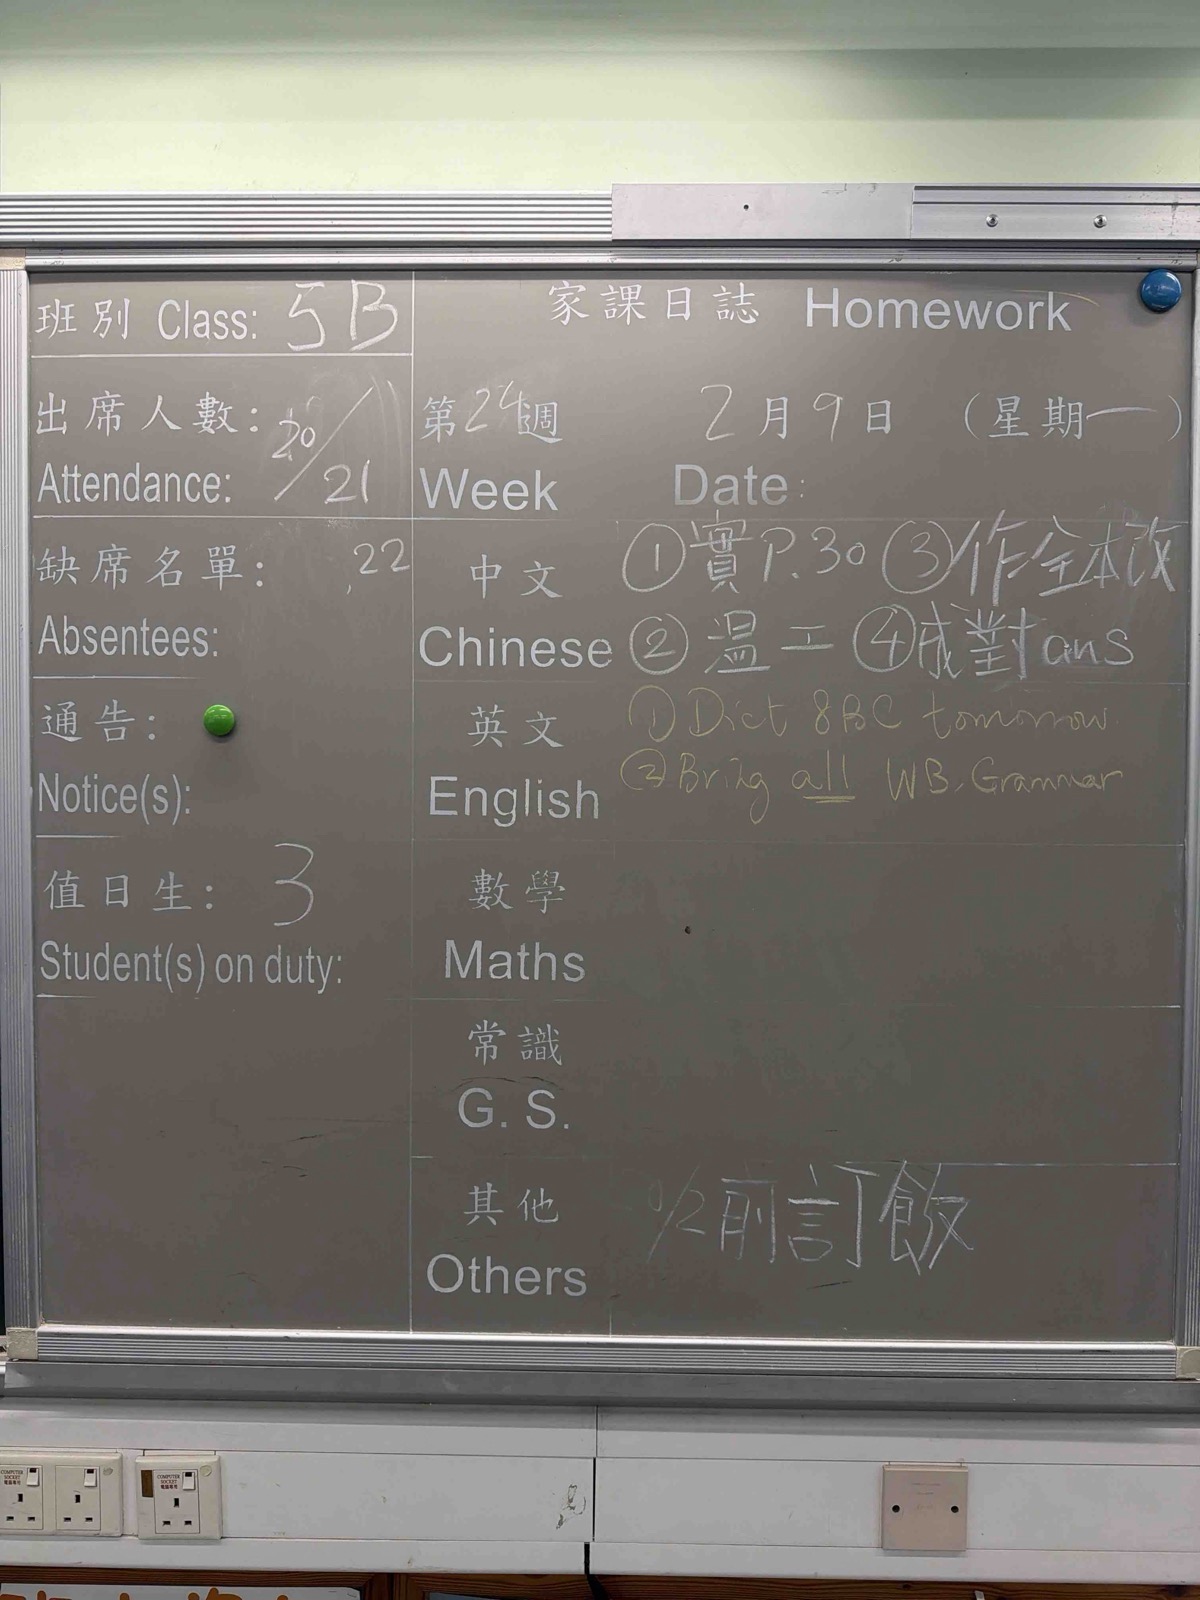 班別 Class: 5B
家課日誌 Homework
出席人數: 20/21
Attendance:
第24週 2月9日 (星期一)
Week Date:
缺席名單: ,22
Absentees:
中文 ①實P.30 ③作全本改
Chinese ②溫工 ④成對ans
通告:
Notice(s):
英文 ①Dict 8BC tomorrow
English ②Bring all WB, Grammar
值日生: 3
Student(s) on duty:
數學
Maths
常識
G. S.
其他 前訂飯
Others
COMPUTER SOCKET
COMPUTER SOCKET